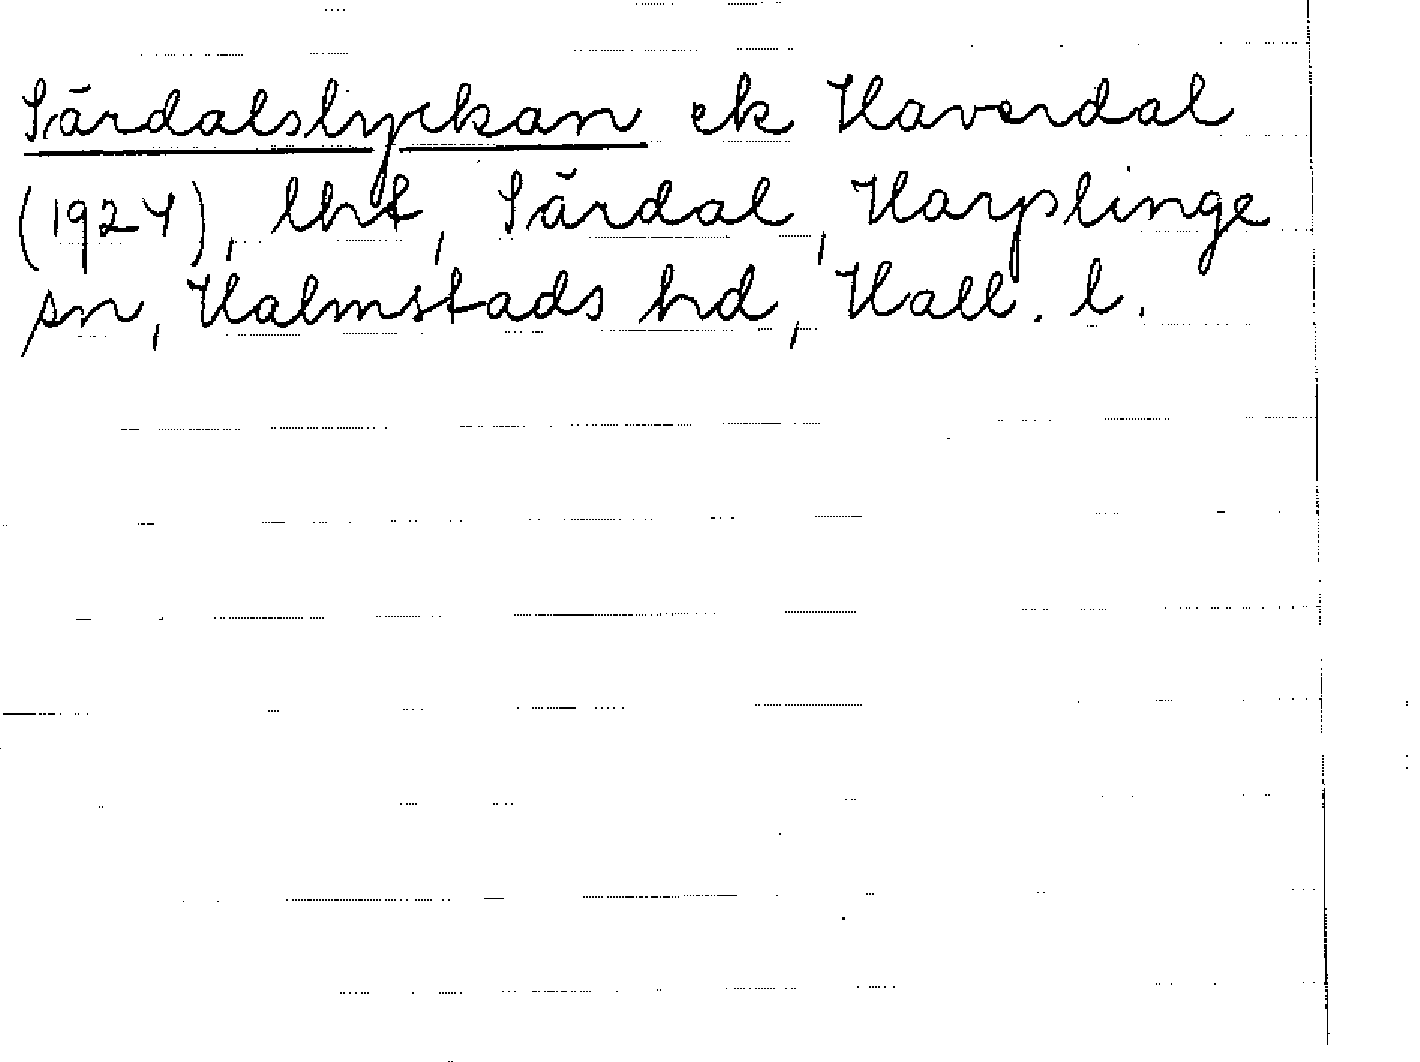 Särdalslyckan ek Haverdal
(1924), lht, Särdal, Harplinge
sn, Halmstads hd, Hall. l.